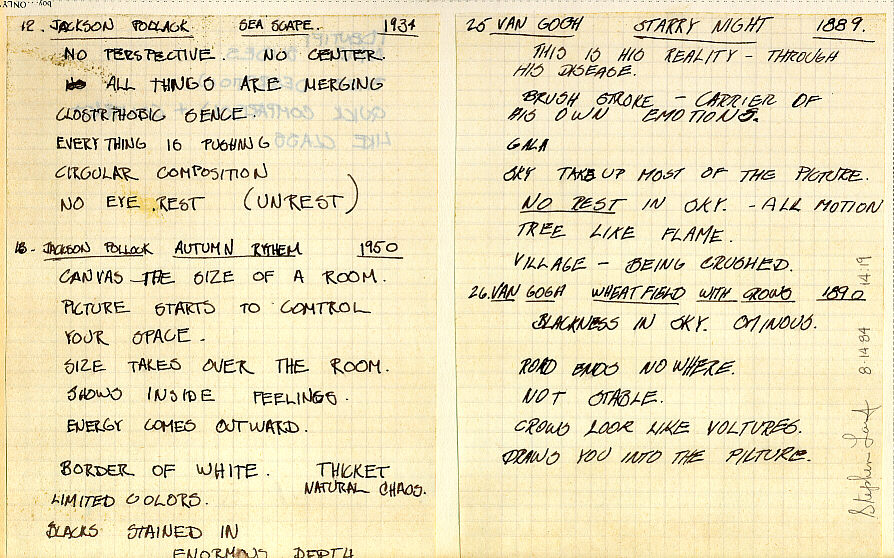 12. JACKSON POLLACK SEA SCAPE. 1934
NO PERSPECTIVE. NO CENTER.
ALL THINGS ARE MERGING
CLOSTRPHOBIC SENCE.
EVERYTHING IS PUSHING
CIRCULAR COMPOSITION
NO EYE REST (UNREST)
13- JACKSON POLLOCK AUTUMN RYTHEM 1950
CANVAS THE SIZE OF A ROOM.
PICTURE STARTS TO COMTROL
YOUR SPACE.
SIZE TAKES OVER THE ROOM.
SHOWS INSIDE FEELINGS.
ENERGY COMES OUTWARD.
BORDER OF WHITE. THICKET
NATURAL CHAOS.
LIMITED COLORS.
BLACKS STAINED IN
ENORMOUS DEPTH
25 VAN GOGH STARRY NIGHT 1889.
THIS IS HIS REALITY - THROUGH
HIS DISEASE.
BRUSH STROKE - CARRIER OF
HIS OWN EMOTIONS.
GALA
SKY TAKES UP MOST OF THE PICTURE.
NO REST IN SKY. - ALL MOTION
TREE LIKE FLAME.
VILLAGE - BEING CRUSHED.
26. VAN GOGH WHEATFIELD WITH CROWS 1890
BLACKNESS IN SKY. OMINOUS.
ROAD ENDS NO WHERE.
NOT STABLE.
CROWS LOOK LIKE VOLTURES.
DRAWS YOU INTO THE PICTURE.
Stephen 8-14-84 14:19